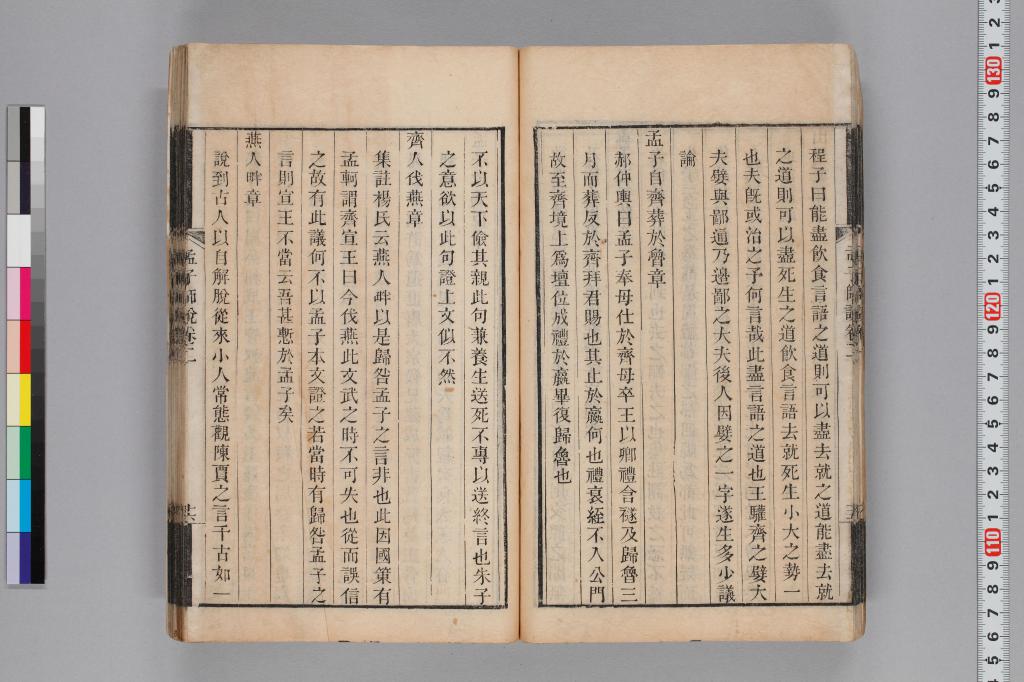 程子曰能盡飲食言語之道則可以盡去就之道能盡去就
之道則可以盡死生之道飲食言語去就死生小大之勢一
也夫旣或治之予何言哉此盡言語之道也王驩齊之嬖大
夫嬖與鄙通乃邊鄙之大夫後人因嬖之一字遂生多少議
論
孟子自齊葬於魯章
郝仲輿曰孟子奉母仕於齊母卒王以卿禮含襚及歸魯三
月而葬反於齊拜君賜也其止於嬴何也禮衰絰不入公門
故至齊境上爲壇位成禮於嬴畢復歸魯也
不以天下儉其親此句兼養生送死不專以送終言也朱子
之意欲以此句證上文似不然
齊人伐燕章
集註楊氏云燕人畔以是歸咎孟子之言非也此因國策有
孟軻謂齊宣王曰今伐燕此文武之時不可失也從而誤信
之故有此議何不以孟子本文證之若當時有歸咎孟子之
言則宣王不當云吾甚慙於孟子矣
燕人畔章
說到古人以自解脫從來小人常態觀陳賈之言千古如一
孟子師說卷二
共